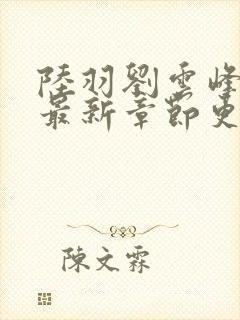 陸羽劉雲峰
最新章節更
陳文霖